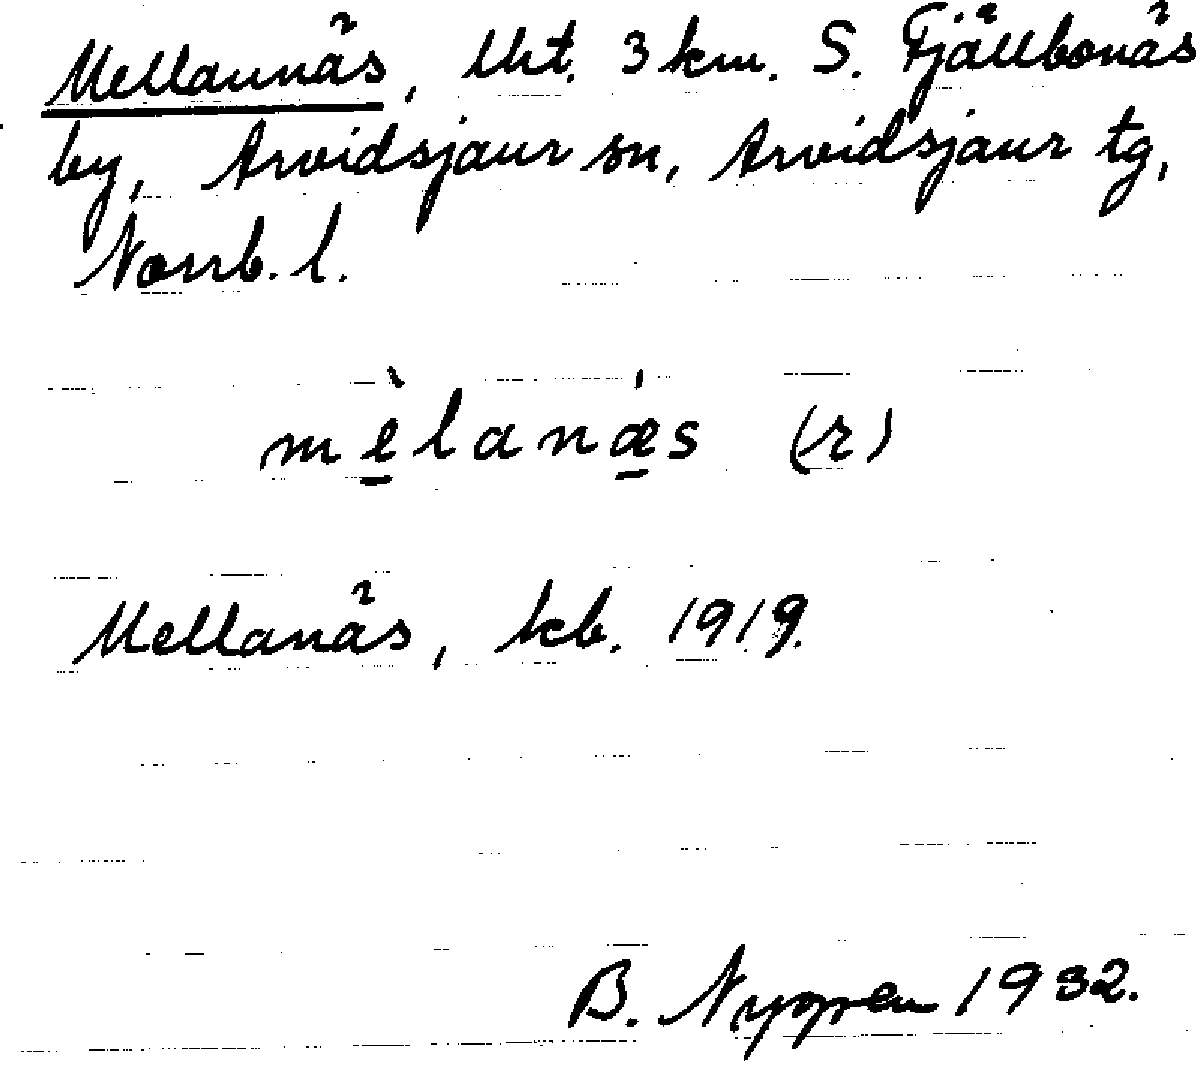 Mellannäs, lht. 3 km. S. Fjällbonäs
by, Arvidsjaur sn, Arvidsjaur tg,
Norrb. l.
mèlanǽs (r)
Mellanäs, kb. 1919.
B. Nygren 1932.